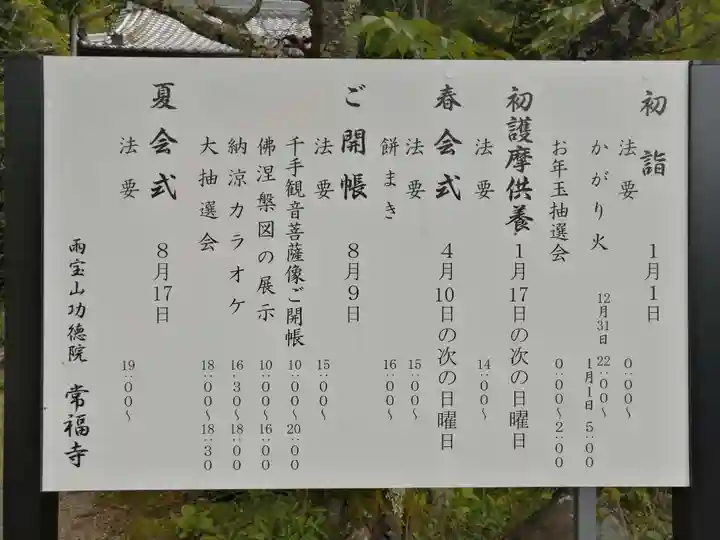 初詣 1月1日
法要 0:00〜
かがり火 12月31日 22:00〜 1月1日 5:00
お年玉抽選会 0:00〜2:00
初護摩供養 1月17日の次の日曜日
法要 14:00〜
春会式 4月10日の次の日曜日
法要 15:00〜
餅まき 16:00〜
ご開帳 8月9日
法要 15:00〜
千手観音菩薩像ご開帳 10:00〜20:00
佛涅槃図の展示 10:00〜16:00
納涼カラオケ 16:30〜18:00
大抽選会 18:00〜18:30
夏会式 8月17日
法要 19:00〜
雨宝山功徳院 常福寺